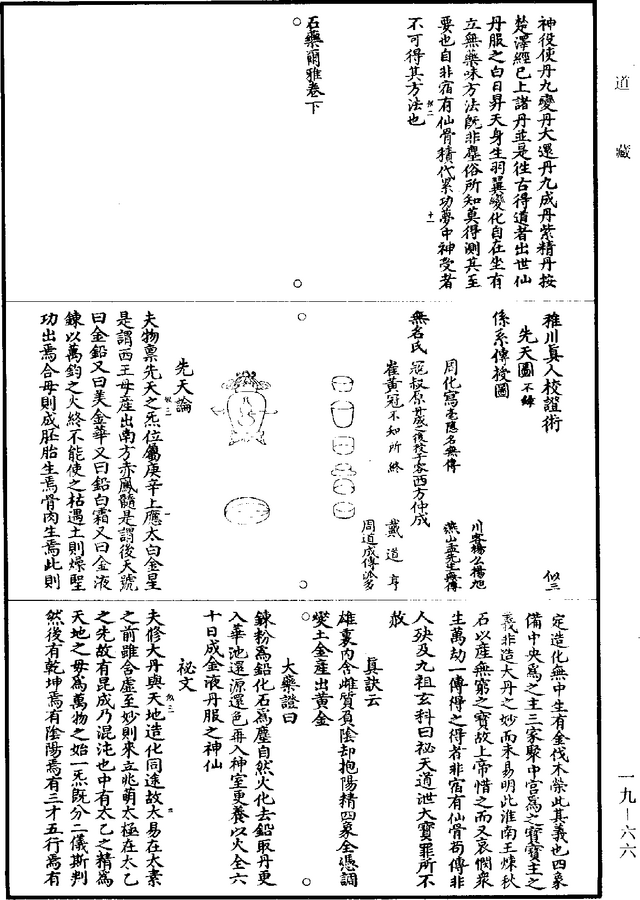 道藏
神役使丹九變丹大還丹九成丹紫精丹按
楚澤經已上諸丹並是徃古得道者出世仙
丹服之白日昇天身生羽翼變化自在坐有
立無藥味方法既非塵俗所知莫得測其至
要也自非宿有仙骨積代累功夢中神受者
不可得其方法也
石藥爾雅卷下
稚川眞人校證術
先天圖不錄
係系傳授圖
川客楊公楊旭
周化寫毫隱名無傳
燕山孟先生無傳
無名氏
戴道亨
崔黃冠不知所終
周道成傳派多
先天論
夫物禀先天之炁位屬庚辛上應太白金星
是謂西王母產出南方赤鳳髓是謂後天號
曰金鉛又曰美金華又曰鉛白霜又曰金液
鍊以萬鈞之火終不能使之枯遇土則燥聖
功出焉合母則成胚胎生焉骨肉生焉此則
定造化無中生有金伐木榮此其義也四象
備中央爲之主三家聚中宮爲之寶寶主之
義非造大丹之妙而未易明此淮南王煉秋
石以產無窮之寶故上帝惜之而又哀憫衆
生萬劫一傳得之得者非宿有仙骨苟傳非
人殃及九祖玄科曰祕天道泄大寶罪所不
赦
眞訣云
雄裏內含雌質負陰却抱陽精四象全憑調
變土金產出黃金
大藥證曰
鍊粉爲鉛化石爲塵自然火化去鉛取丹更
入華池還源還色再入神室更養以火全六
十日成金液丹服之神仙
祕文
夫修大丹與天地造化同途故太易在太素
之前雖含虛至妙則來立兆萌太極在太乙
之先故有昆成乃混沌也中有太乙之精爲
天地之母爲萬物之始一炁旣分二儀斯判
然後有乾坤焉有陰陽焉有三才五行焉有
一九－六六